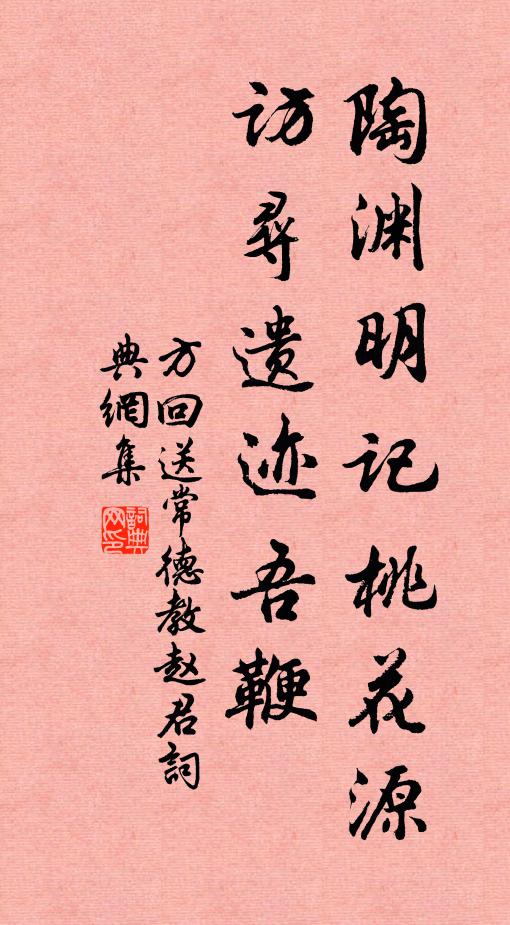 陶渊明记桃花源
访寻遗迹吾鞭
方回送常德教赵君詞
典網集
詞典网印